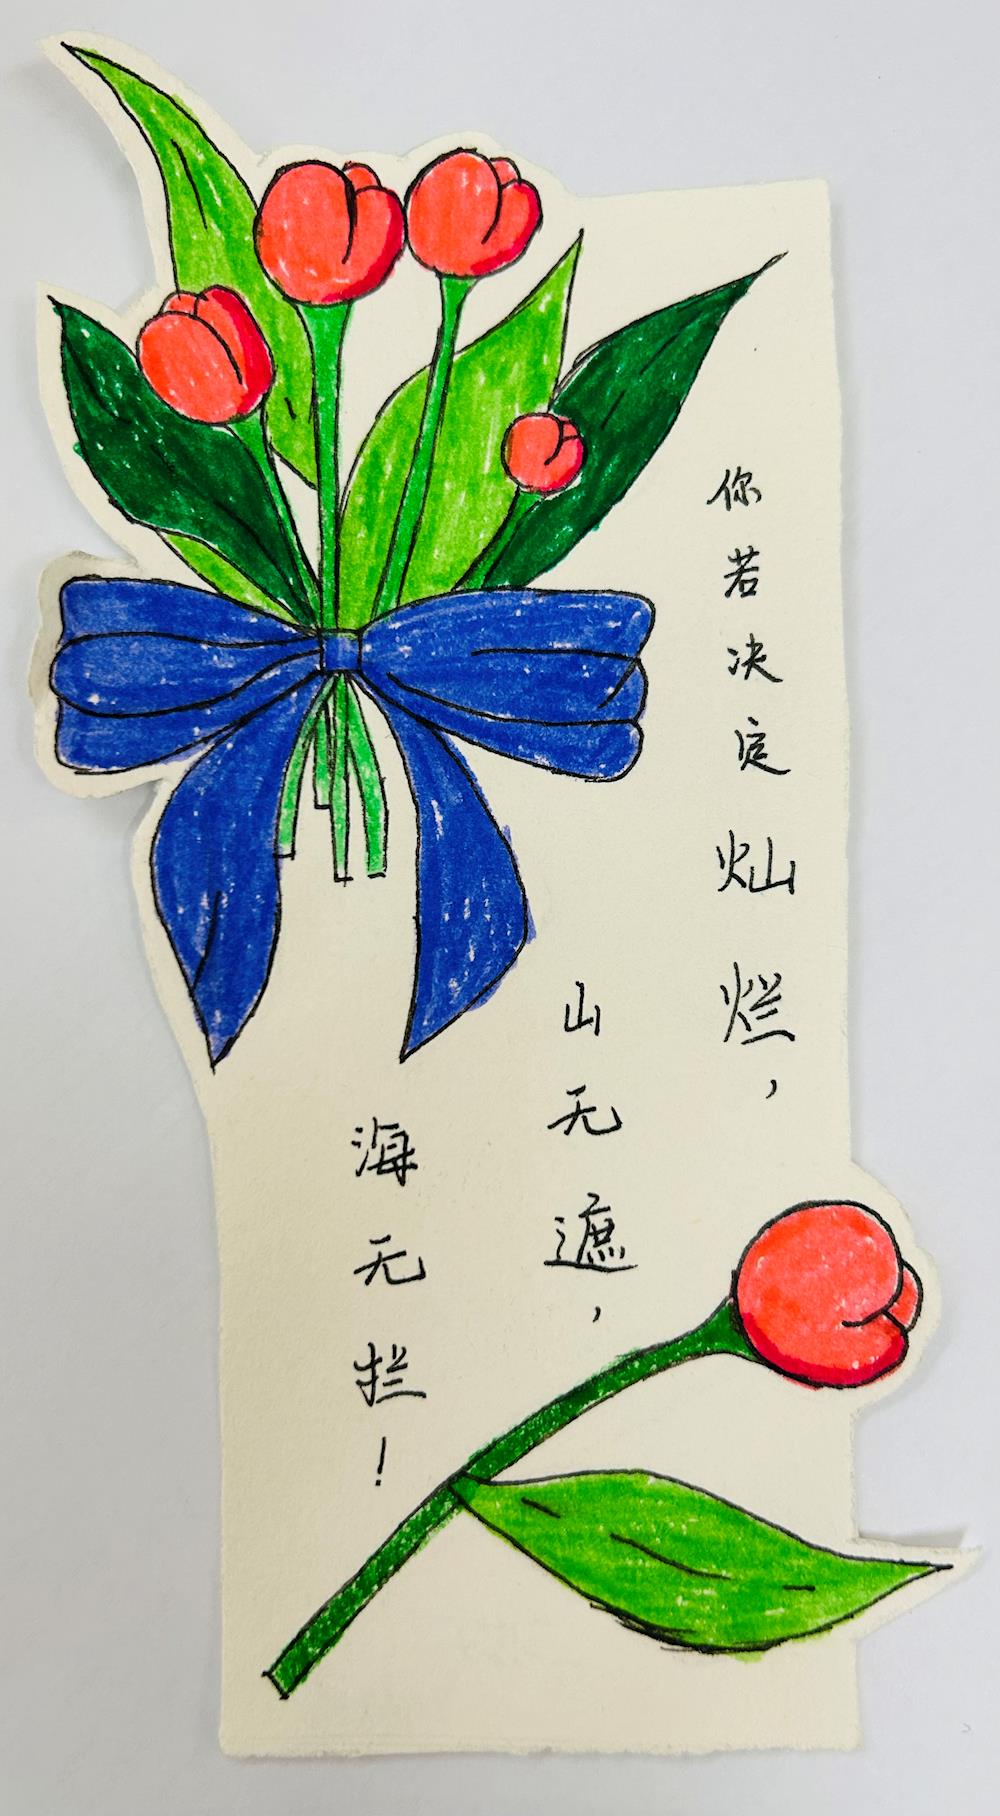 你若决定灿烂，
山无遮，
海无拦！